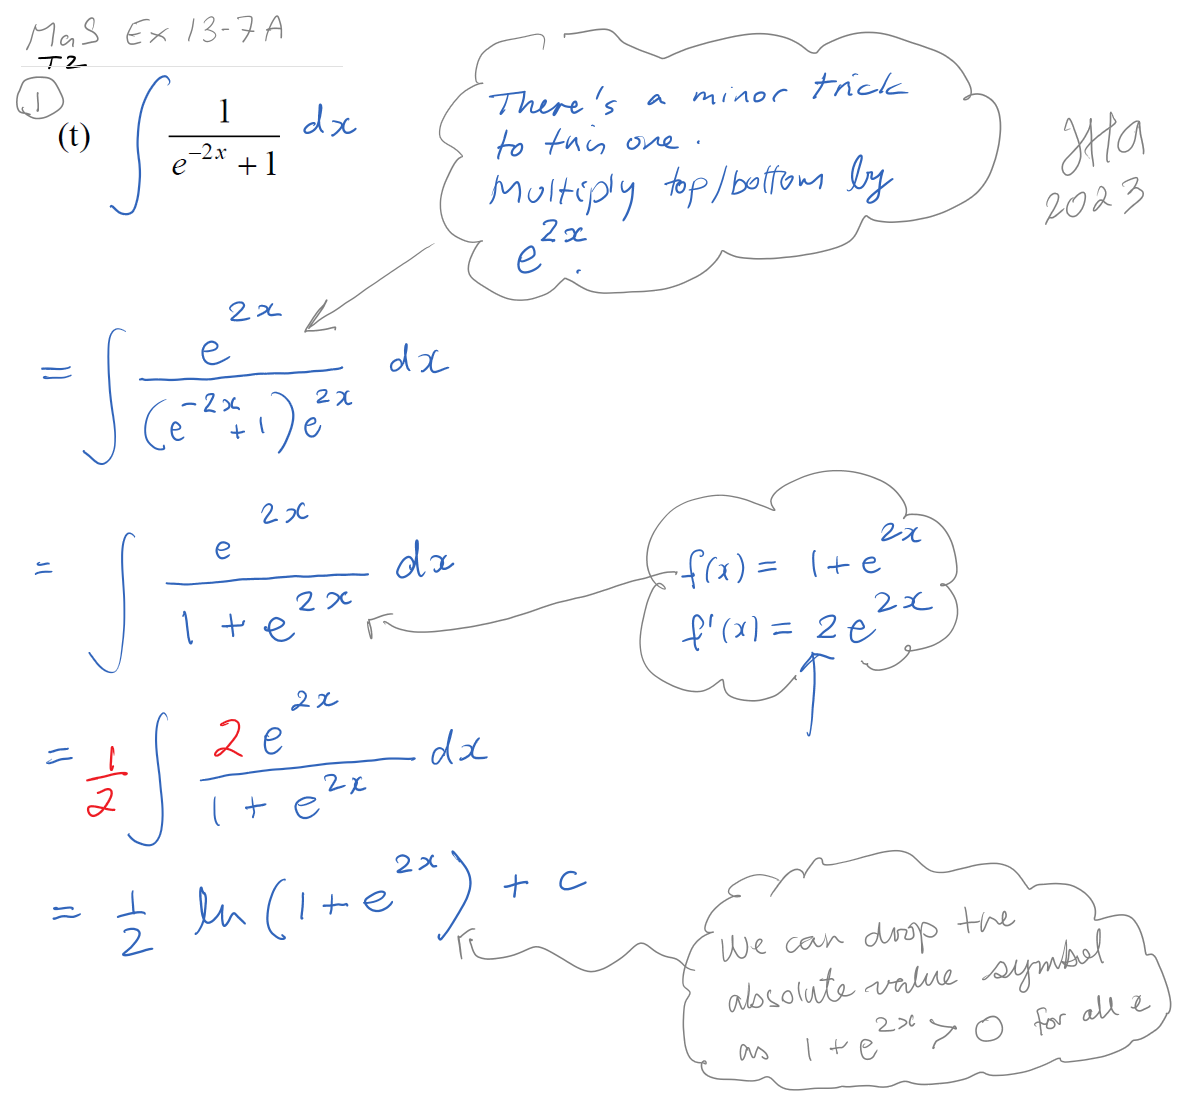 MaS Ex 13-7A
T2
1
(t) ∫ 1/(e^{-2x} + 1) dx
There's a minor trick
to this one.
Multiply top/bottom by
e^{2x}.
JHa
2023
= ∫ e^{2x}/((e^{-2x} + 1)e^{2x}) dx
= ∫ e^{2x}/(1 + e^{2x}) dx
f(x) = 1 + e^{2x}
f'(x) = 2e^{2x}
= 1/2 ∫ 2e^{2x}/(1 + e^{2x}) dx
= 1/2 ln(1 + e^{2x}) + c
We can drop the
absolute value symbol
as 1 + e^{2x} > 0 for all x